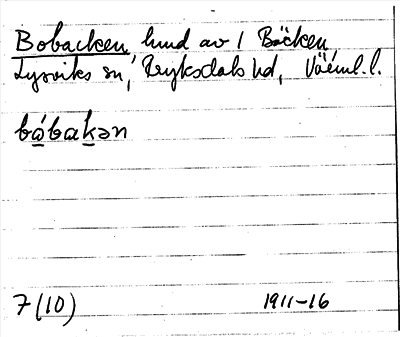 Bobacken, hmd av 1 Bäcken,
Lysviks sn, Fryksdals hd, Värml. l.
båbakən
7(10) 1911-16